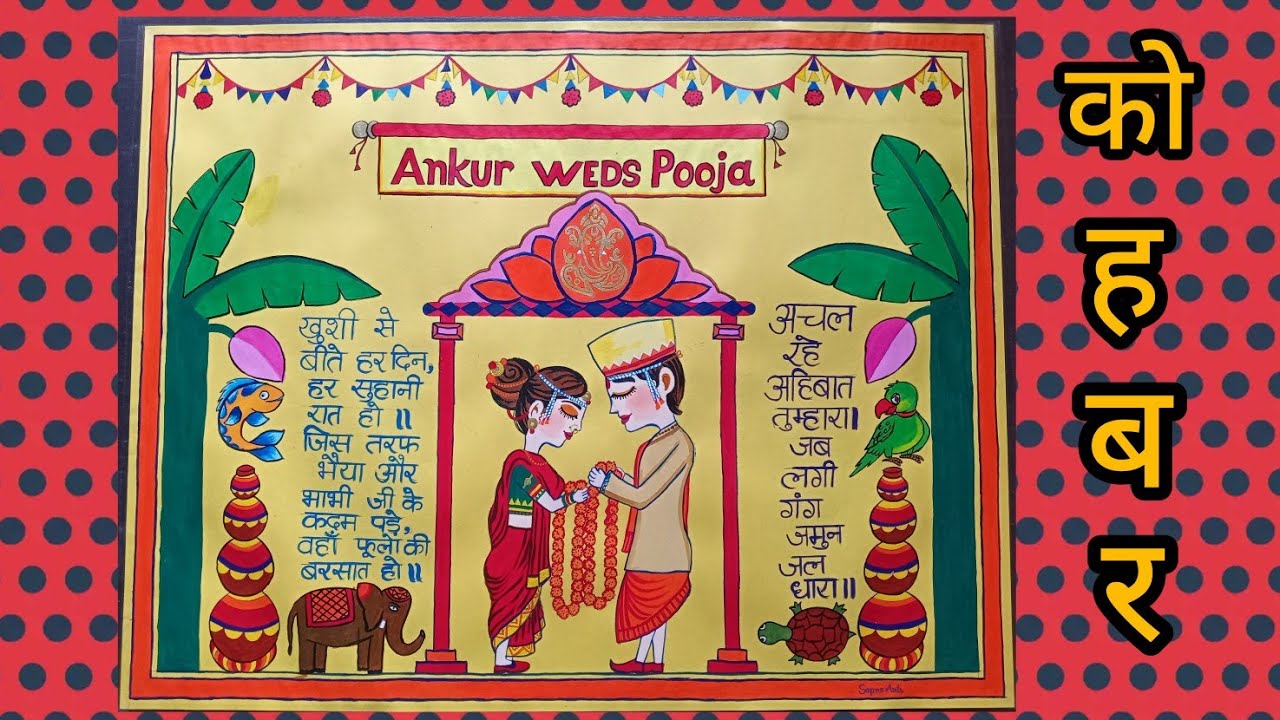 Ankur WEDS Pooja
खुशी से
बीते हर दिन,
हर सुहानी
रात हो॥
जिस तरफ
भैया और
भाभी जी के
कदम पड़े,
वहाँ फूलों की
बरसात हो॥
अचल
रहे
अहिबात
तुम्हारा।
जब
लगी
गंग
जमुन
जल
धारा॥
को
ह
ब
र